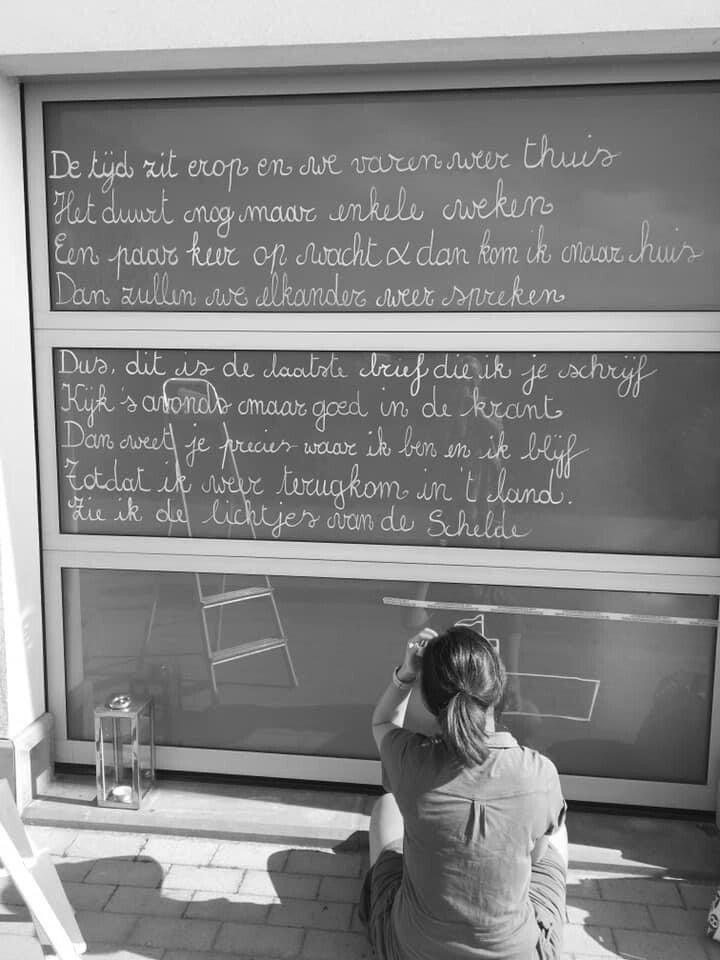 De tijd zit erop en we varen weer thuis
Het duurt nog maar enkele weken
Een paar keer op wacht & dan kom ik naar huis
Dan zullen we elkander weer spreken
Dus, dit is de laatste brief die ik je schrijf
Kijk 's avonds maar goed in de krant
Dan weet je precies waar ik ben en ik blijf
Totdat ik weer terugkom in 't land.
Zie ik de lichtjes van de Schelde